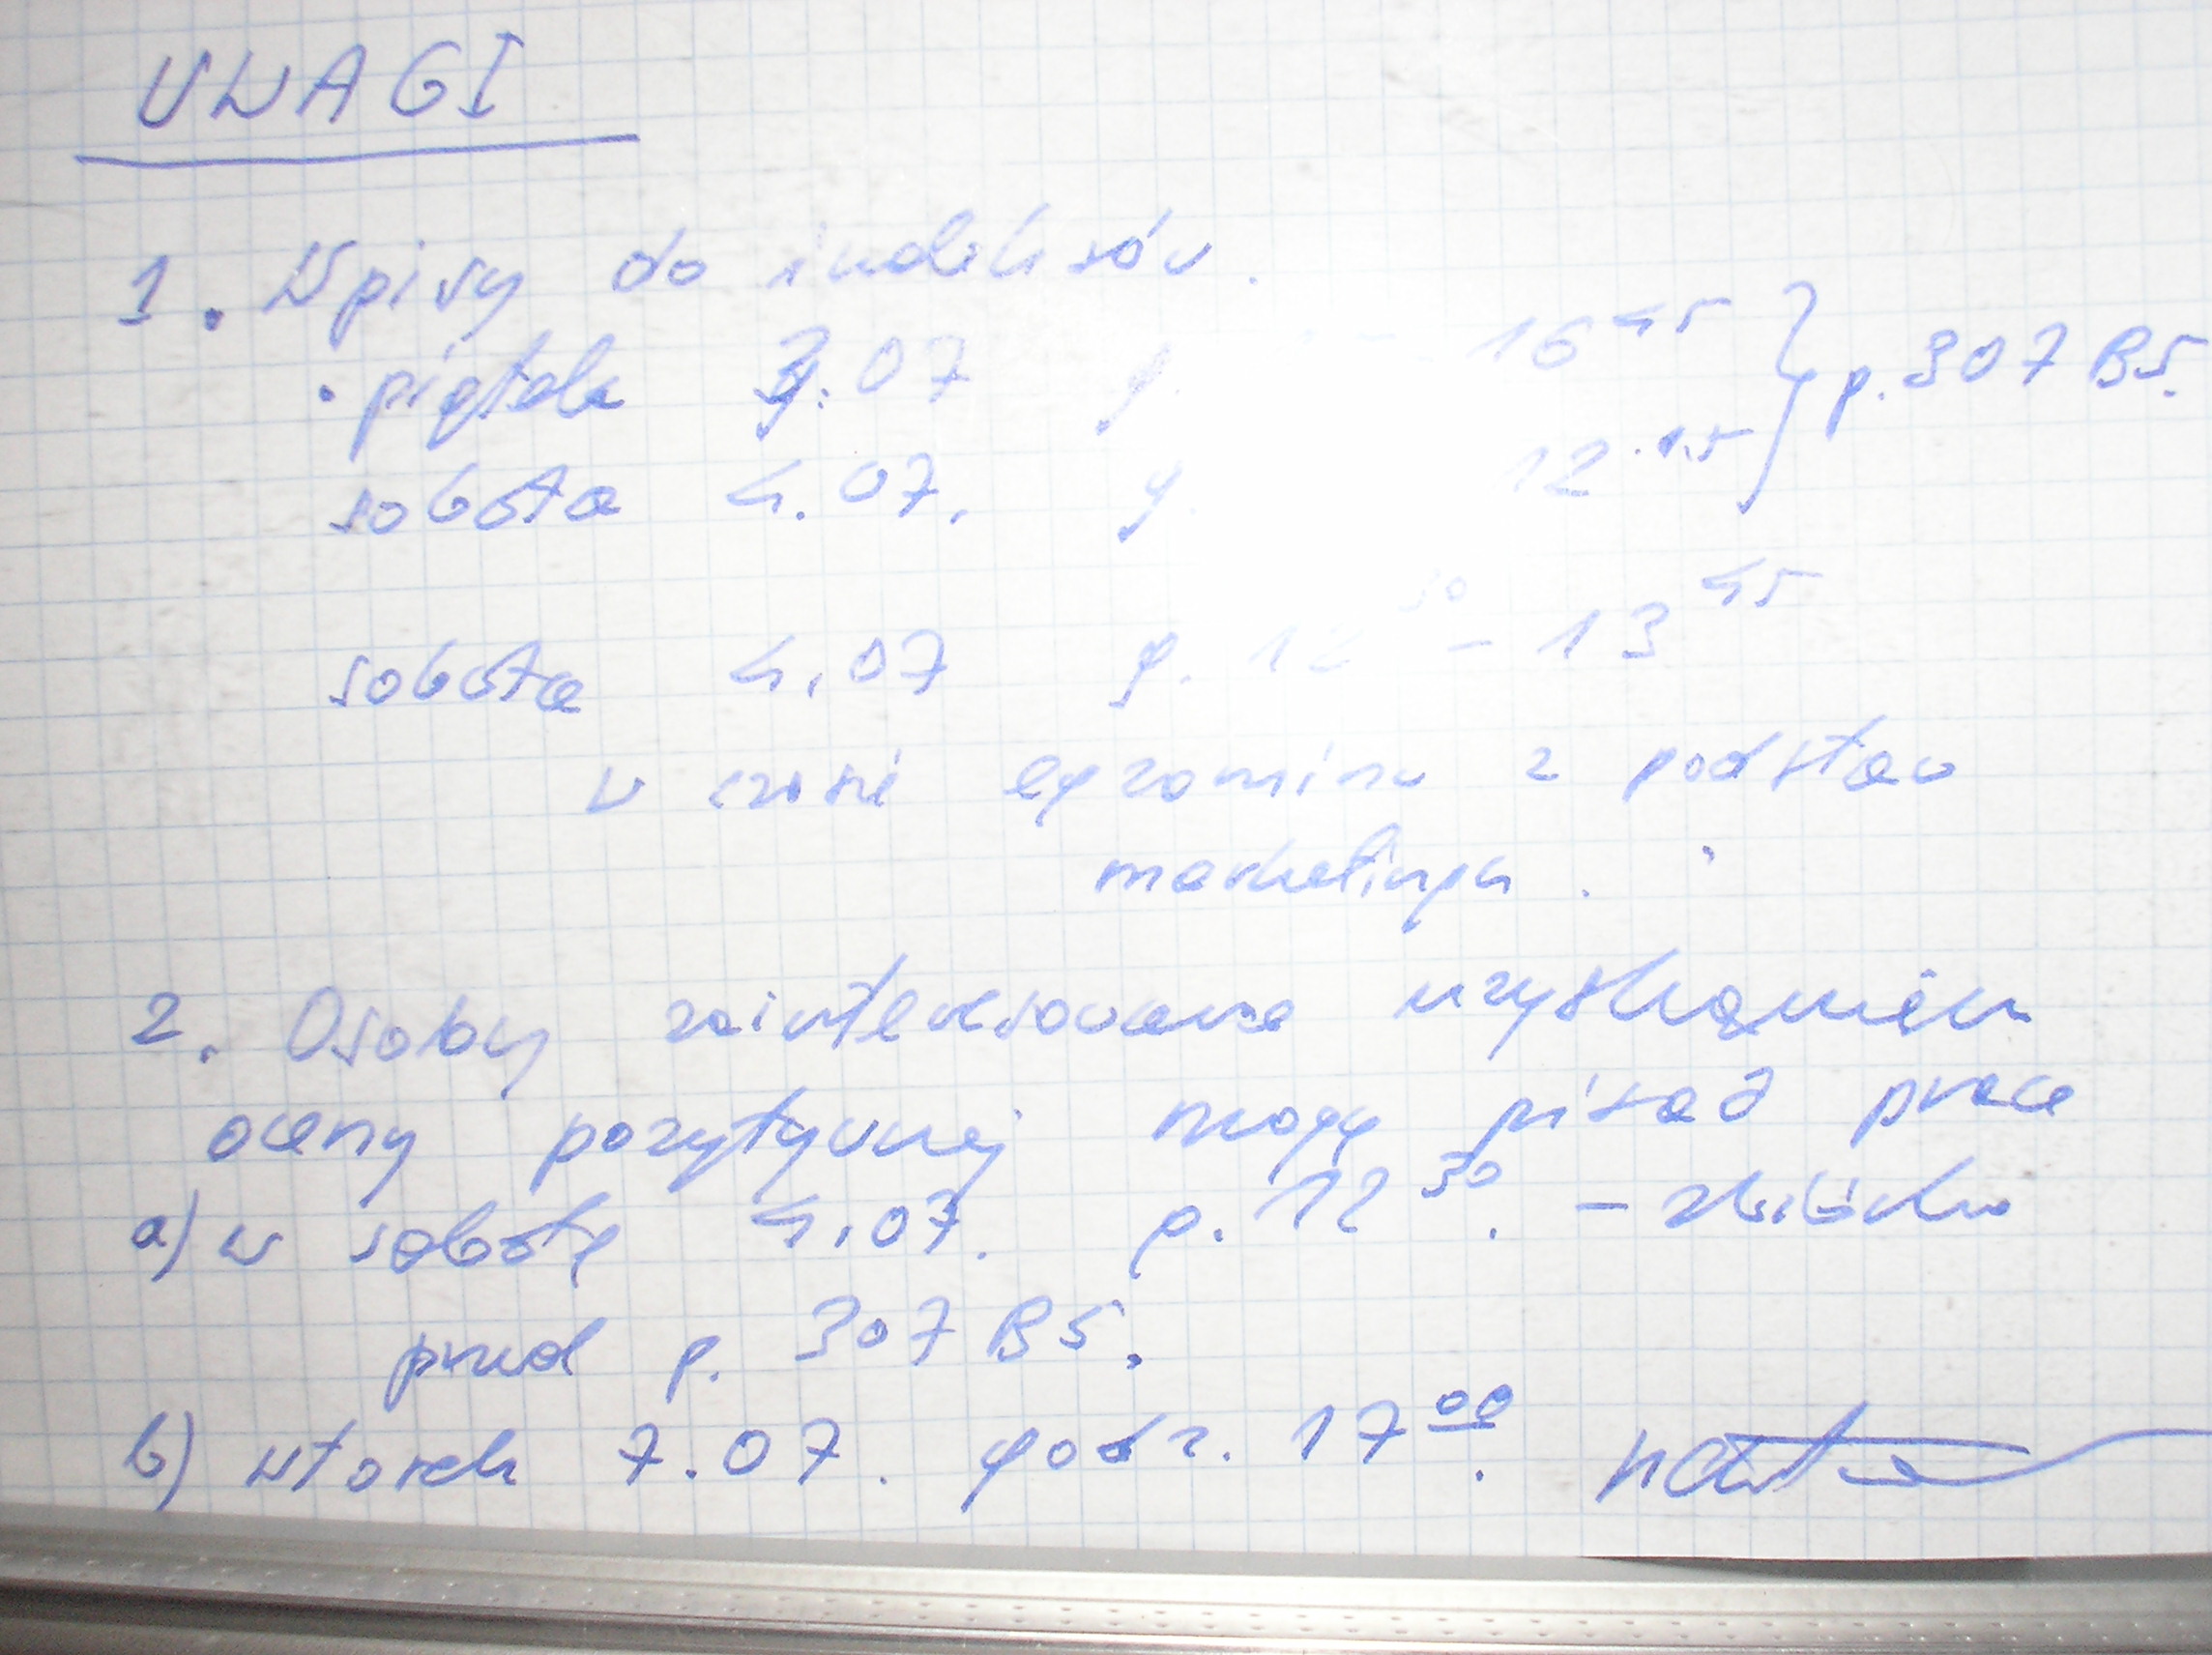 UWAGI
1. Wpisy do indeksów.
• piątek 3.07 g. - 16 45 } p. 307 B5.
sobota 4.07. g. 12.15
sobota 4.07 g. 12 30 - 13 45
w czasie egzaminu z podstaw
marketingu.
2. Osoby zainteresowane uzyskaniem
oceny pozytywnej mogą pisać prace
a) w sobotę 4.07. g. 12 30. - zbiórka
przed p. 307 B5.
b) wtorek 7.07. godz. 17 00.